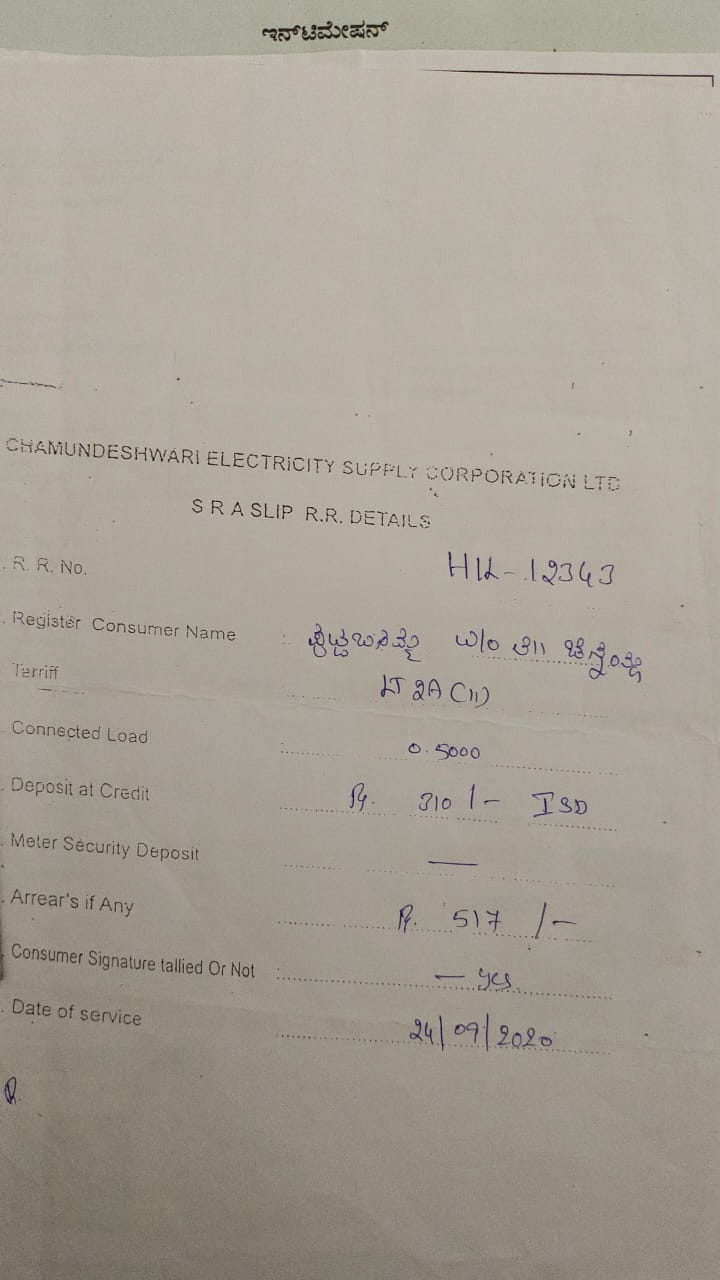 ಇನ್‌ಟಿಮೇಷನ್
CHAMUNDESHWARI ELECTRICITY SUPPLY CORPORATION LTD
S R A SLIP R.R. DETAILS
. R. R. No. HIL - 12343
. Register Consumer Name : W/o
Terriff LT 2A (ii)
Connected Load : 0.5000
. Deposit at Credit Rs. 310/- ISD
. Meter Security Deposit —
. Arrear's if Any Rs. 517/-
. Consumer Signature tallied Or Not : — yes
. Date of service 24/09/2020